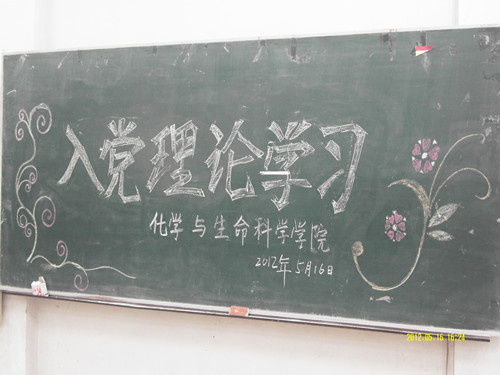 入党理论学习
化学与生命科学学院
2012年5月16日
2012.05.16 15:24